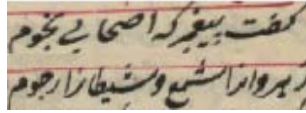 گفت پیغمبر که اصحابی نجوم
رهروانرا شمع و شیطانرا رجوم